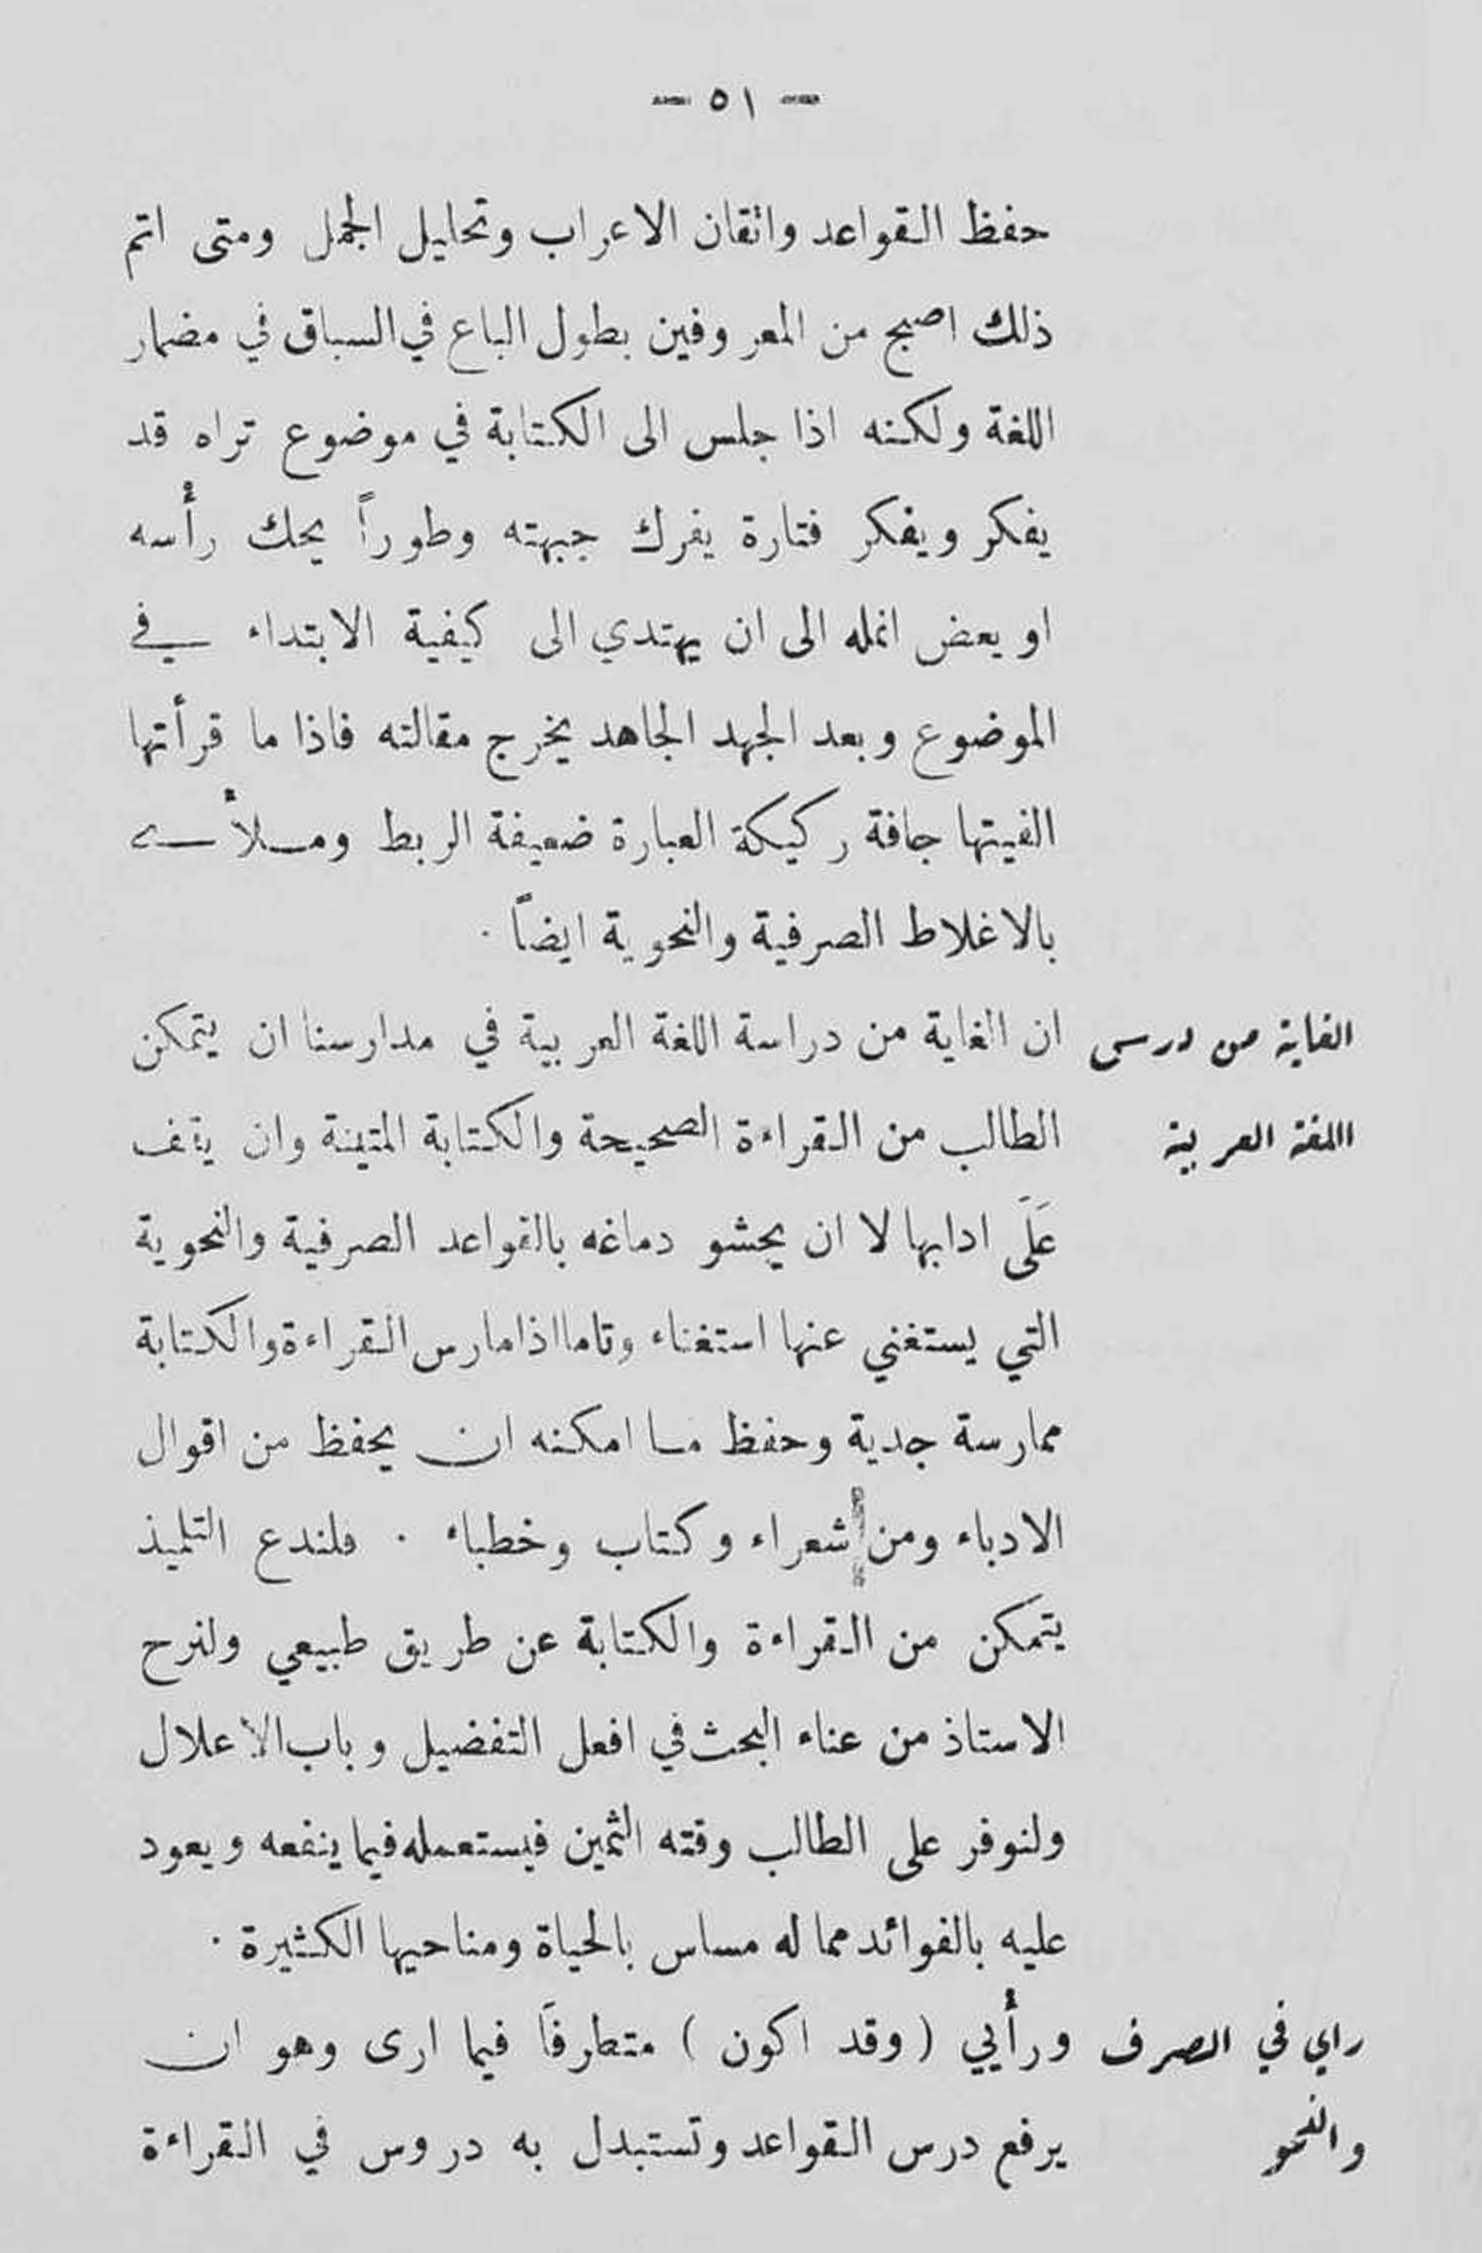 — ٥١ —
حفظ القواعد واتقان الاعراب وتحليل الجمل ومتى اتم
ذلك اصبح من المعروفين بطول الباع في السباق في مضمار
اللغة ولكنه اذا جلس الى الكتابة في موضوع تراه قد
يفكر ويفكر فتارة يفرك جبهته وطوراً يحك رأسه
او يعض انمله الى ان يهتدي الى كيفية الابتداء في
الموضوع وبعد الجهد الجاهد يخرج مقالته فاذا ما قرأتها
الفيتها جافة ركيكة العبارة ضعيفة الربط وملأى
بالاغلاط الصرفية والنحوية ايضاً .
الغاية من درس ان الغاية من دراسة اللغة العربية في مدارسنا ان يتمكن
اللغة العربية الطالب من القراءة الصحيحة والكتابة المتينة وان يقف
عَلَى ادابها لا ان يحشو دماغه بالقواعد الصرفية والنحوية
التي يستغني عنها استغناء وتاما اذا مارس القراءة والكتابة
ممارسة جدية وحفظ ما امكنه ان يحفظ من اقوال
الادباء ومن شعراء وكتاب وخطباء . فلندع التلميذ
يتمكن من القراءة والكتابة عن طريق طبيعي ولنرح
الاستاذ من عناء البحث في افعل التفضيل وباب الاعلال
ولنوفر على الطالب وقته الثمين فيستعمله فيما ينفعه ويعود
عليه بالفوائد مما له مساس بالحياة ومناحيها الكثيرة .
راي في الصرف ورأيي ( وقد اكون ) متطرفاً فيما ارى وهو ان
والنحو يرفع درس القواعد وتستبدل به دروس في القراءة